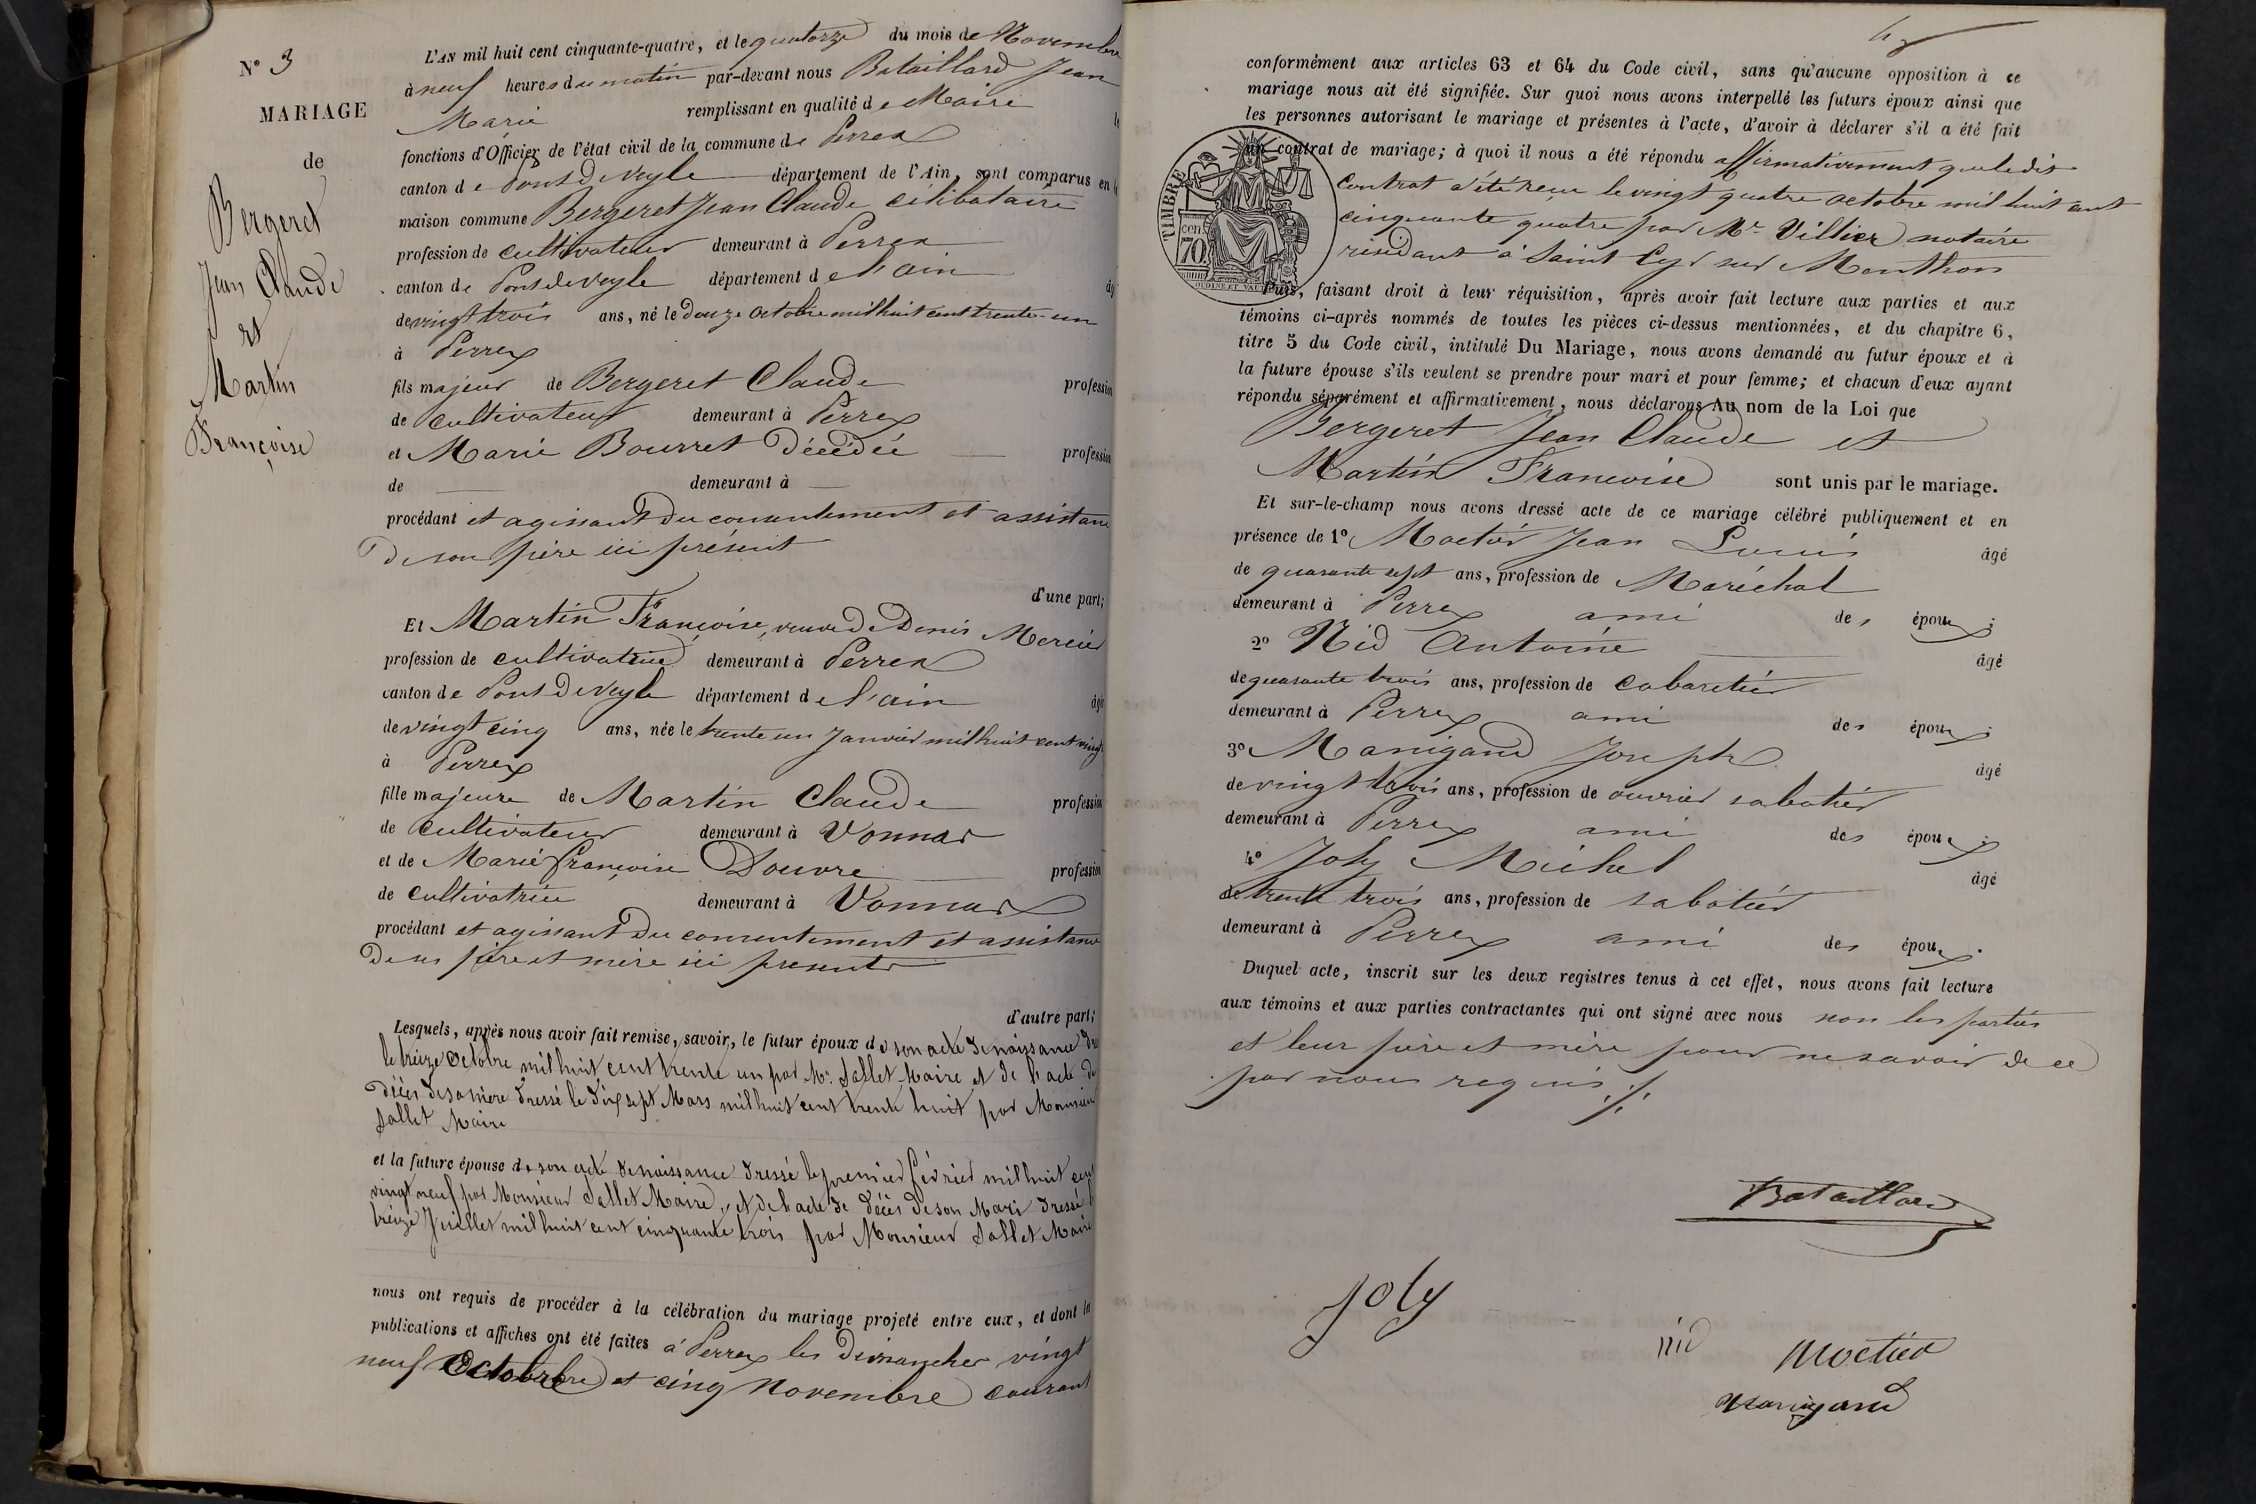 N° 3
MARIAGE
de
Bergeret
Jean Claude
et
Martin
Françoise
L'AN mil huit cent cinquante-quatre, et le quatorze du mois de Novembre
à neuf heures du matin par-devant nous Bataillard Jean
Marie remplissant en qualité de Maire
fonctions d'Officier de l'état civil de la commune de Perrex
canton de Pont de veyle département de l'Ain, sont comparus en
maison commune Bergeret Jean Claude célibataire
profession de cultivateur demeurant à Perrex
canton de Pont de veyle département de l'ain
de vingt trois ans, né le Douze octobre mil huit cent trente-un
à Perrex
fils majeur de Bergeret Claude profession
de cultivateur demeurant à Perrex
et Marie Bourret Décédée profession
de demeurant à
procédant et agissant du consentement et assistance
De son père ici présent
d'une part;
Et Martin Françoise, veuve de Denis Mercier
profession de cultivatrice demeurant à Perrex
canton de Pont De veyle département de l'ain
de vingt cinq ans, née le trente un Janvier mil huit cent vingt
à Perrex
fille majeure de Martin Claude profession
de cultivateur demeurant à Vonnas
et de Marie françoise Douvre profession
de cultivatrice demeurant à Vonnas
procédant et agissant Du consentement et assistance
De ses père et mère ici présents
d'autre part;
Lesquels, après nous avoir fait remise, savoir, le futur époux de son acte de naissance
le treize octobre mil huit cent trente un par Mr. Sallet Maire et de l'acte de
décès de sa mère Dressé le Dix sept Mars mil huit cent trente huit par Monsieur
Sallet Maire
et la future épouse de son acte de naissance Dressé le premier février mil huit cent
vingt neuf par Monsieur Sallet Maire, et de l'acte de décès de son Mari Dressé
treize Juillet mil huit cent cinquante trois par Monsieur Sallet Maire
nous ont requis de procéder à la célébration du mariage projeté entre eux, et dont les
publications et affiches ont été faites à Perrex les Dimanches vingt
neuf Octobre et cinq Novembre courant
conformément aux articles 63 et 64 du Code civil, sans qu'aucune opposition à ce
mariage nous ait été signifiée. Sur quoi nous avons interpellé les futurs époux ainsi que
les personnes autorisant le mariage et présentes à l'acte, d'avoir à déclarer s'il a été fait
un contrat de mariage; à quoi il nous a été répondu affirmativement que ledit
contrat a été reçu le vingt quatre octobre mil huit cent
cinquante quatre par Mr. Villier notaire
résidant à Saint Cyr sur Menthon
TIMBRE
70 cen.
Puis, faisant droit à leur réquisition, après avoir fait lecture aux parties et aux
témoins ci-après nommés de toutes les pièces ci-dessus mentionnées, et du chapitre 6,
titre 5 du Code civil, intitulé Du Mariage, nous avons demandé au futur époux et à
la future épouse s'ils veulent se prendre pour mari et pour femme; et chacun d'eux ayant
répondu séparément et affirmativement, nous déclarons Au nom de la Loi que
Bergeret Jean Claude et
Martin Francoise sont unis par le mariage.
Et sur-le-champ nous avons dressé acte de ce mariage célébré publiquement et en
présence de 1° Moctier Jean Louis âgé
de quarante sept ans, profession de Maréchal
demeurant à Perrex ami des époux;
2° Nid Antoine âgé
de quarante trois ans, profession de cabaretier
demeurant à Perrex ami des époux;
3° Manigand Joseph âgé
de vingt trois ans, profession de ouvrier sabotier
demeurant à Perrex ami des époux;
4° Joly Michel âgé
de trente trois ans, profession de sabotier
demeurant à Perrex ami des époux.
Duquel acte, inscrit sur les deux registres tenus à cet effet, nous avons fait lecture
aux témoins et aux parties contractantes qui ont signé avec nous non les parties
et leur père et mère pour ne savoir de ce
par nous requis ./.
Bataillard
Joly
nid
Moctier
Manigand